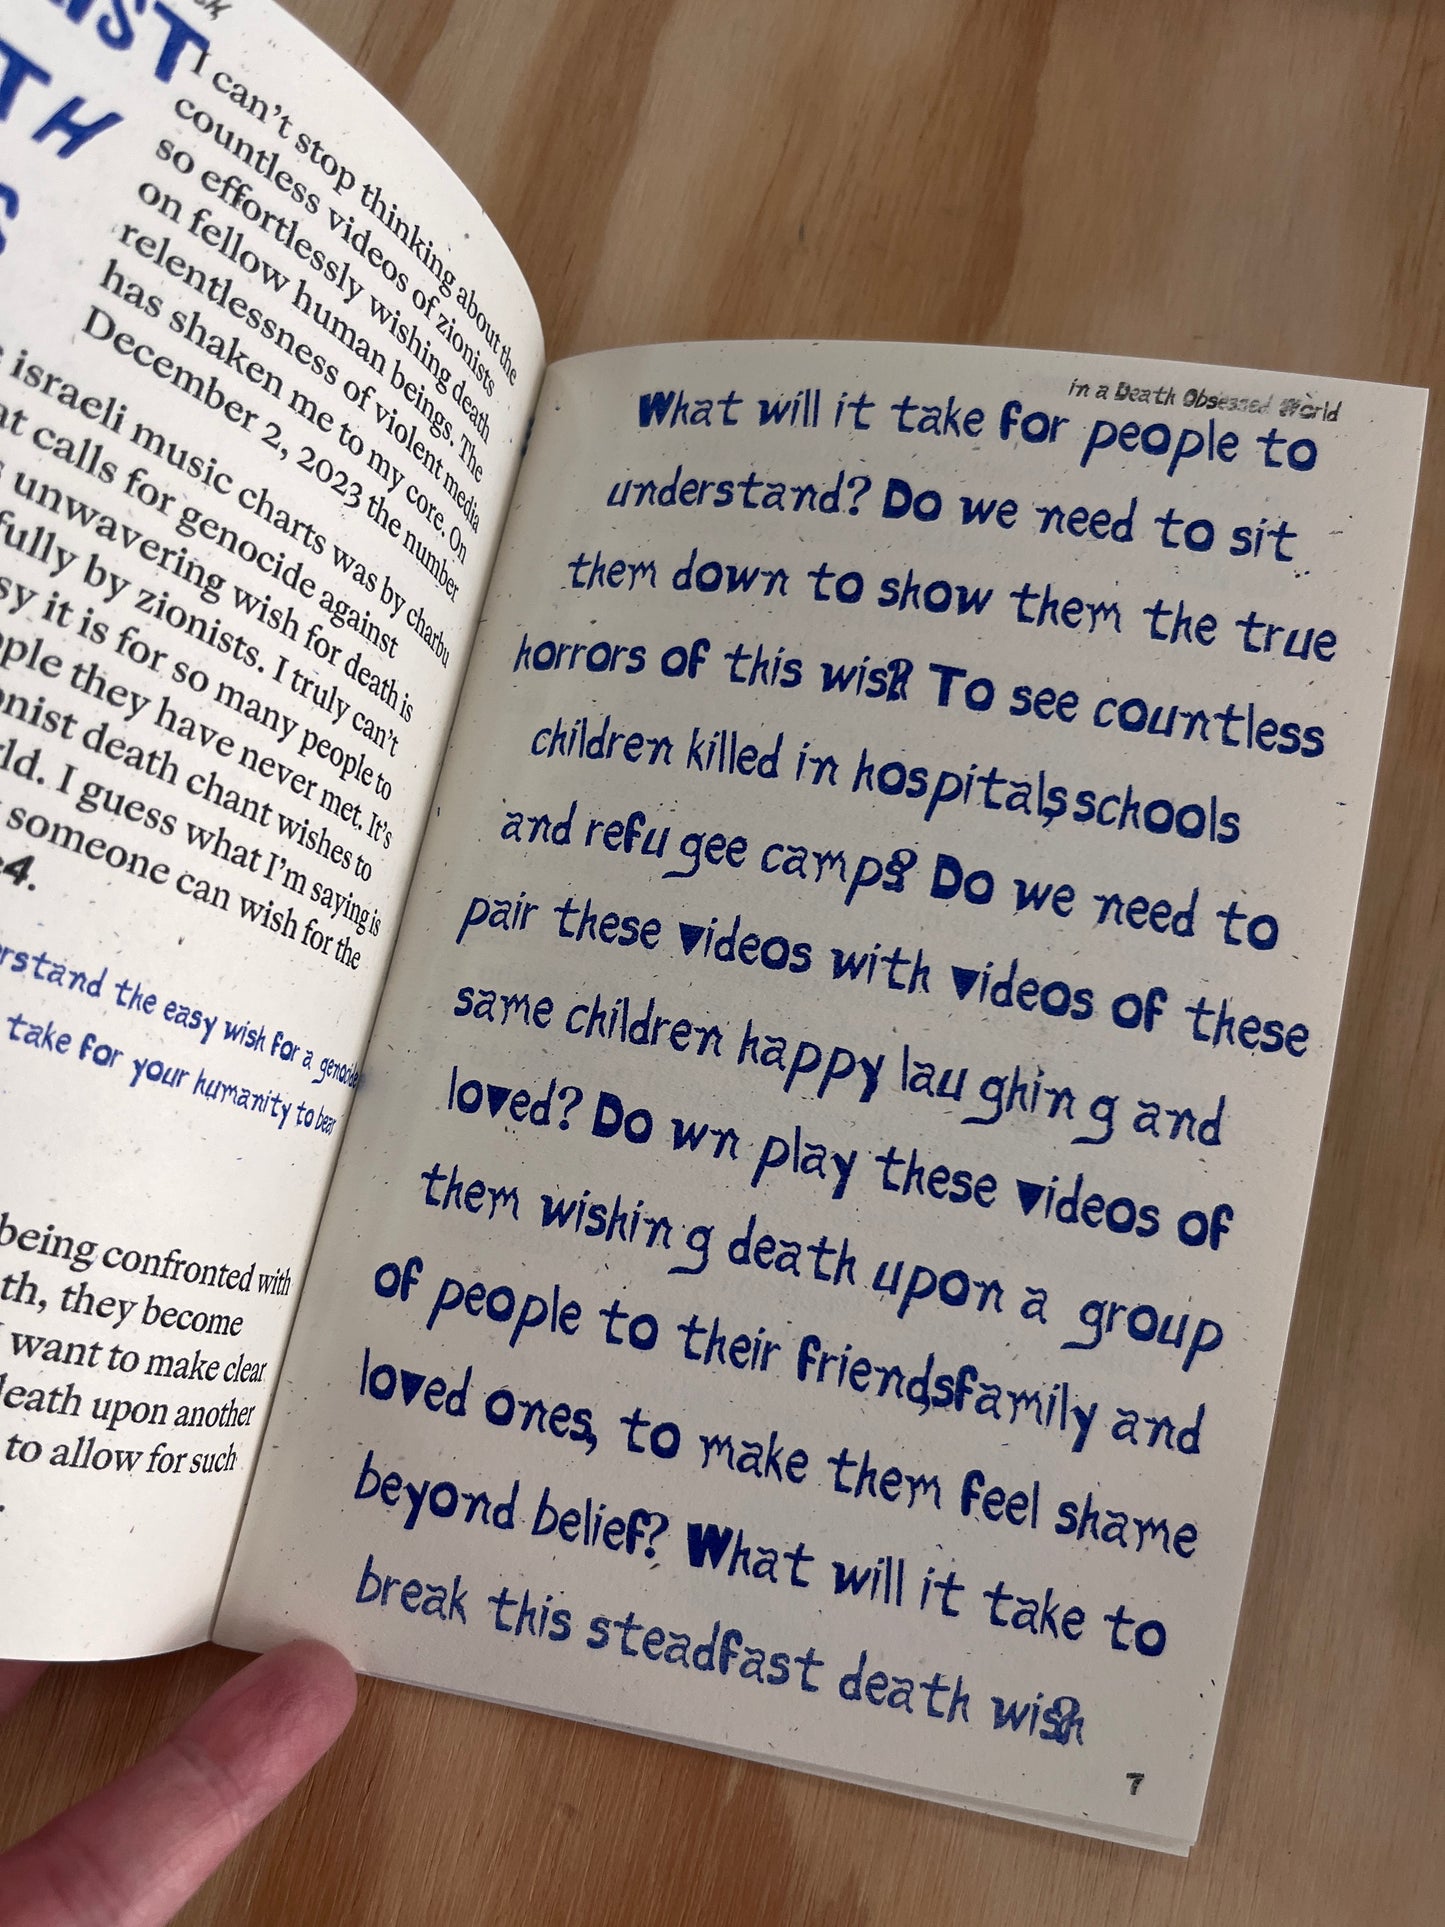 IST
TH
S
I can't stop thinking about the
countless videos of zionists
so effortlessly wishing death
on fellow human beings. The
relentlessness of violent media
has shaken me to my core. On
December 2, 2023 the number
israeli music charts was by charbu
at calls for genocide against
unwavering wish for death is
fully by zionists. I truly can't
sy it is for so many people to
ople they have never met. It's
onist death chant wishes to
rld. I guess what I'm saying is
someone can wish for the
e4.
erstand the easy wish for a genocide
take for your humanity to bear
being confronted with
th, they become
I want to make clear
death upon another
to allow for such
in a Death Obsessed World
What will it take for people to
understand? Do we need to sit
them down to show them the true
horrors of this wish? To see countless
children killed in hospitals, schools
and refugee camps? Do we need to
pair these videos with videos of these
same children happy laughing and
loved? Do wn play these videos of
them wishing death upon a group
of people to their friends, family and
loved ones, to make them feel shame
beyond belief? What will it take to
break this steadfast death wish?
7